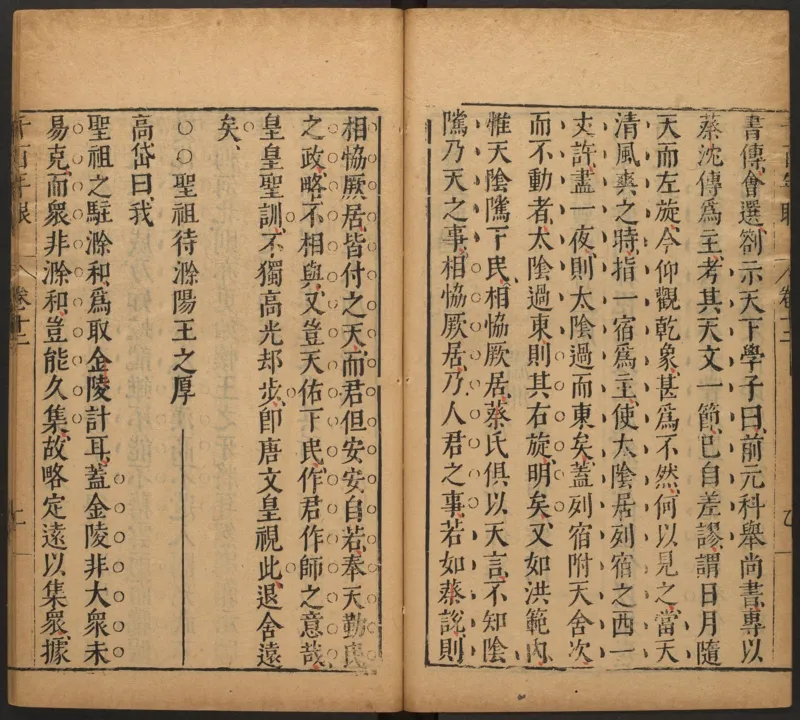 書傳會選劄示天下學子曰前元科舉尚書專以
蔡沈傳爲主考其天文一節已自差謬謂日月隨
天而左旋今仰觀乾象甚爲不然何以見之當天
清風爽之時指一宿爲主使太陰居列宿之西一
丈許盡一夜則太陰過而東矣蓋列宿附天舍次
而不動者太陰過東則其右旋明矣又如洪範內
惟天陰隲下民相恊厥居蔡氏俱以天言不知陰
隲乃天之事相恊厥居乃人君之事若如蔡說則
相恊厥居皆付之天而君但安安自若奉天勤民
之政略不相與又豈天佑下民作君作師之意哉
皇皇聖訓不獨高光却步卽唐文皇視此退舍遠
矣
○○聖祖待滁陽王之厚
高岱曰我
聖祖之駐滁和爲取金陵計耳蓋金陵非大衆未
易克而衆非滁和豈能久集故略定遠以集衆據
千百年眼 卷十二